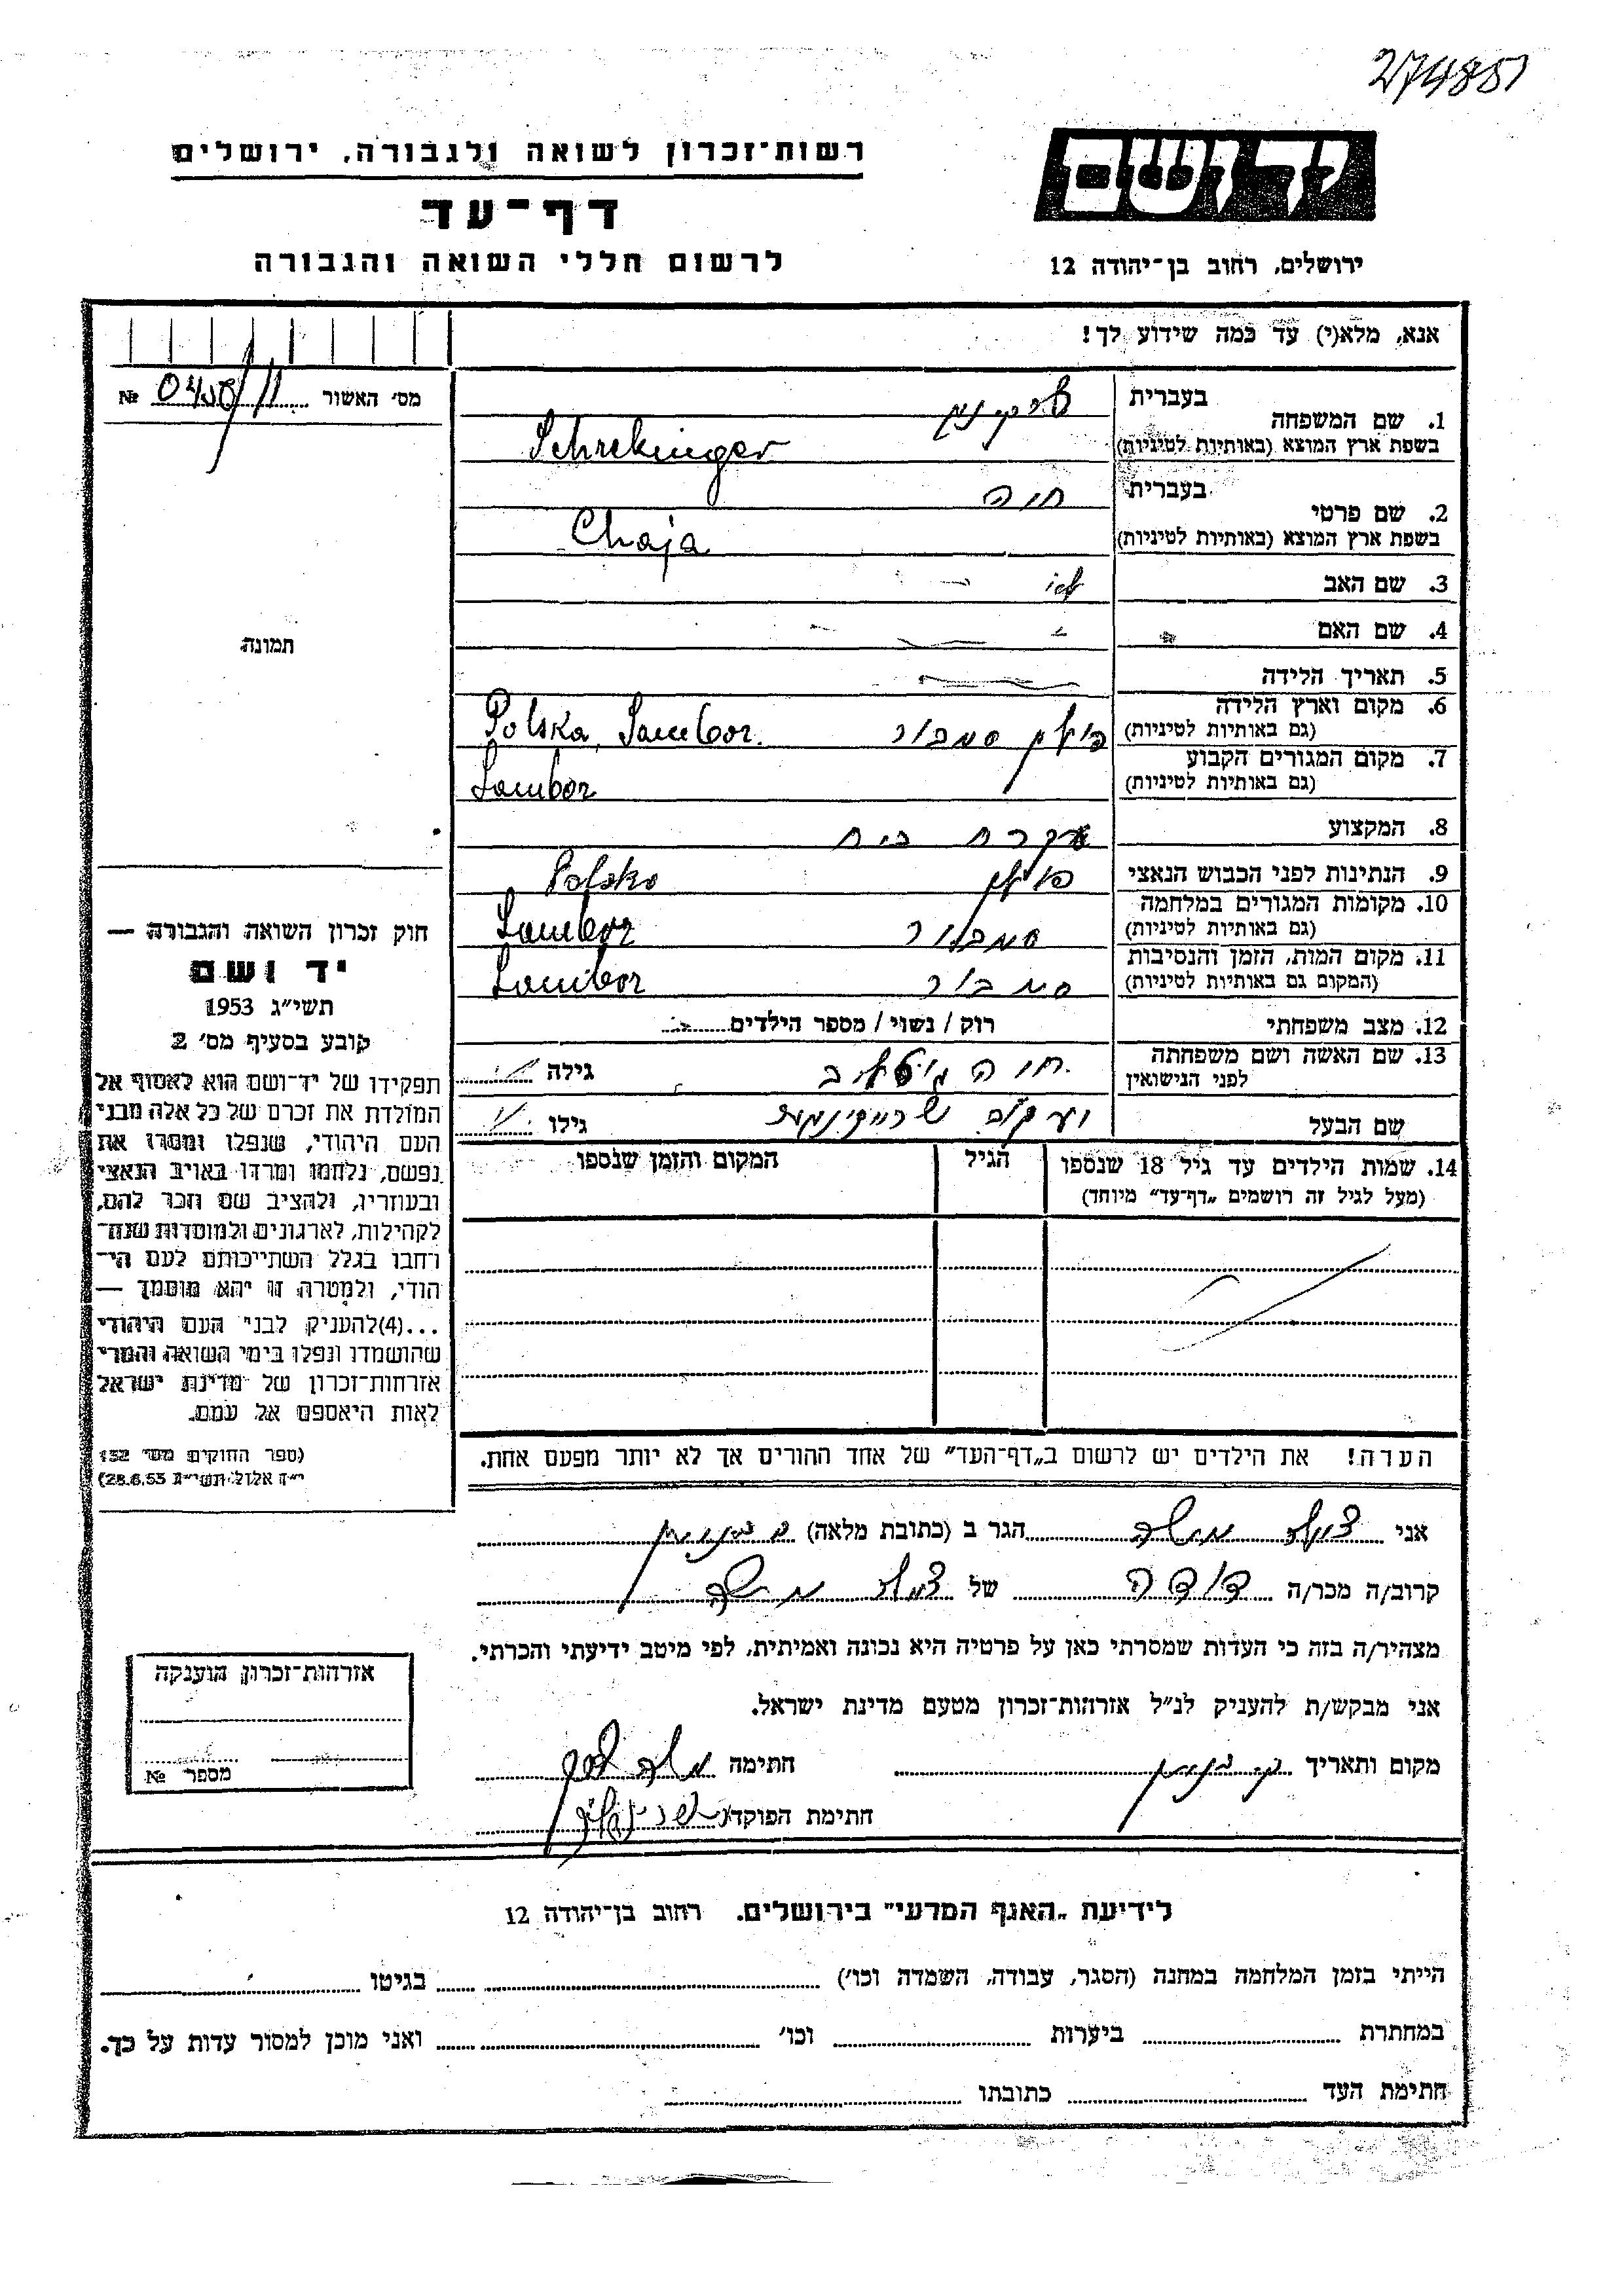 274851
רשות־זכרון לשואה ולגבורה, ירושלים
דף־עד
לרשום חללי השואה והגבורה
יד ושם
ירושלים, רחוב בן־יהודה 12
אנא, מלא(י) עד כמה שידוע לך!
מס׳ האשור № 
1. שם המשפחה בעברית
בשפת ארץ המוצא (באותיות לטיניות) Schrekinger
2. שם פרטי בעברית חיה
בשפת ארץ המוצא (באותיות לטיניות) Chaja
3. שם האב
4. שם האם
5. תאריך הלידה
6. מקום וארץ הלידה (גם באותיות לטיניות) פולין סמבור Polska, Sambor.
7. מקום המגורים הקבוע (גם באותיות לטיניות) Sambor
8. המקצוע עקרת בית
9. הנתינות לפני הכבוש הנאצי פולין Polsko
10. מקומות המגורים במלחמה (גם באותיות לטיניות) סמבור Sambor
11. מקום המות, הזמן והנסיבות (המקום גם באותיות לטיניות) סמבור Sambor
12. מצב משפחתי רוק / נשוי / מספר הילדים
13. שם האשה ושם משפחתה לפני הנישואין חיה גילה
שם הבעל גילו
14. שמות הילדים עד גיל 18 שנספו הגיל המקום והזמן שנספו
(מעל לגיל זה רושמים „דף־עד” מיוחד)
הערה! את הילדים יש לרשום ב„דף־העד” של אחד ההורים אך לא יותר מפעם אחת.
תמונה
חוק זכרון השואה והגבורה —
יד ושם
תשי״ג 1953
קובע בסעיף מס׳ 2
תפקידו של יד־ושם הוא לאסוף אל
המולדת את זכרם של כל אלה מבני
העם היהודי, שנפלו ומסרו את
נפשם, נלחמו ומרדו באויב הנאצי
ובעוזריו, ולהציב שם וזכר להם,
לקהילות, לארגונים ולמוסדות שנח־
רחבו בגלל השתייכותם לעם הי־
הודי, ולמטרה זו יהא מוסמך —
...(4)להעניק לבני העם היהודי
שהושמדו ונפלו בימי השואה והמרי
אזרחות־זכרון של מדינת ישראל
לאות היאספם אל עמם.
(ספר החוקים מס׳ 132
י״ז אלול תשי״ג 28.8.53)
אני משה הגר ב (כתובת מלאה)
קרוב/ה מכר/ה דודה של משה
מצהיר/ה בזה כי העדות שמסרתי כאן על פרטיה היא נכונה ואמיתית, לפי מיטב ידיעתי והכרתי.
אני מבקש/ת להעניק לנ״ל אזרחות־זכרון מטעם מדינת ישראל.
מקום ותאריך חתימה
חתימת הפוקד
אזרחות־זכרון הוענקה
מספר №
לידיעת „האגף המדעי” בירושלים. רחוב בן־יהודה 12
הייתי בזמן המלחמה במחנה (הסגר, עבודה, השמדה וכו׳) בגיטו
במחתרת ביערות וכו׳ ואני מוכן למסור עדות על כך.
חתימת העד כתובתו